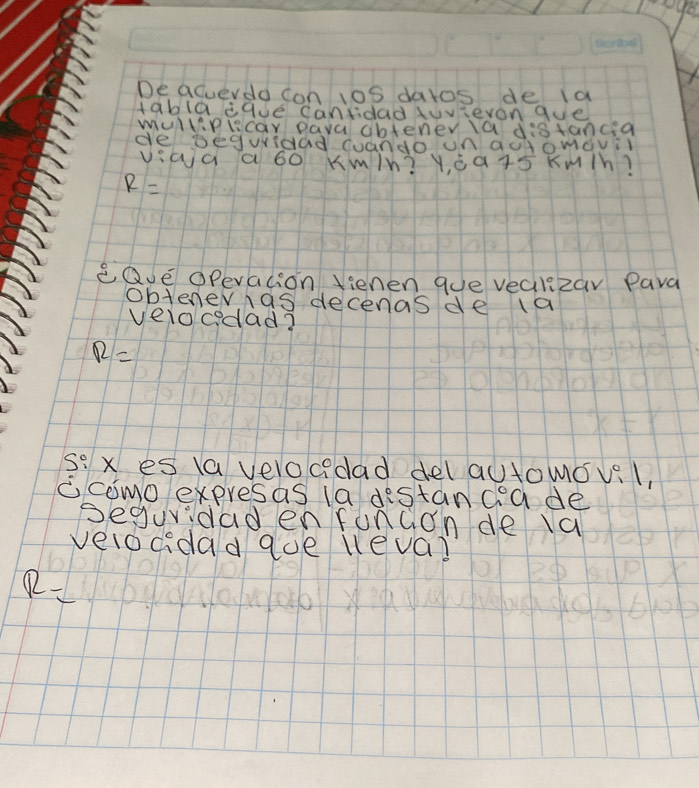 Scribe
De acuerdo con los datos de la
tabla ¿que cantidad tuvieron que
multiplicar para obtener la distancia
de seguridad cuando un automovil
viaja a 60 Km/h? Y, ¿a 75 KM/h?
R=
¿Qué operación tienen que realizar Para
obtener las decenas de la
velocidad?
R=
Si x es la velocidad del automóvil,
¿cómo expresas la distancia de
seguridad en función de la
velocidad que lleva?
R=